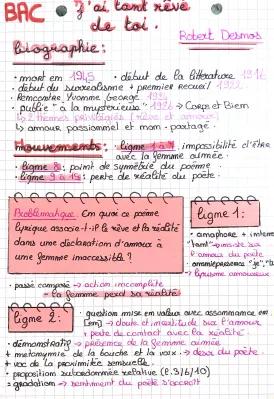 BAC J'ai tant rêvé
de toi.
Robert Desnos
biographie:
• mort en 1945 • début de la littérature 1916
• début du surréalisme + premier recueil 1922
• Rencontre Yvonne George 1924
• publie "à la mystérieuse" 1926 → Corps et Biens
↳ 2 thèmes privilégiés (rêve et amour)
↳ amour passionnel et non partagé.
Mouvements: • ligne 1 à 7: impossibilité d'être
avec la femme aimée.
• ligne 8: point de symétrie du poème.
• ligne 9 à 15: perte de réalité du poète.
Problématique: En quoi ce poème
lyrique associe-t-il le rêve et la réalité
dans une déclaration d'amour à
une femme inaccessible?
ligne 1:
• anaphore + intens
"tant" → insiste sur
l'amour du poète
• omniprésence "je", "t
↳ lyrisme amoureux
• passé composé → action incomplète
→ la femme perd sa réalité
ligne 2:
• question mise en valeur avec assonance en
[en] → doute et incertitude sur l'amour
+ perte de contact avec la réalité.
• démonstratif → présence de la femme aimée
+ métonymie de la bouche et la voix → désir du poète.
+ voc de la proximité sensuelle.
• proposition subordonnée relative (l.3/6/10)
= gradation → sentiment du poète s'accroît